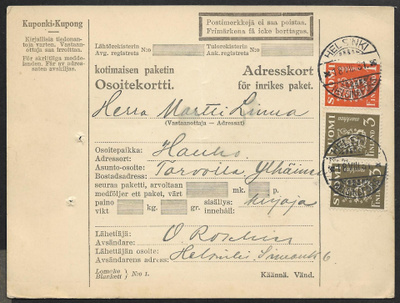 Kuponki-Kupong
Kirjallisia tiedonantoja varten. Vastaanottaja saa irroittaa.
För skriftliga meddelanden. Får av adressaten avskiljas.
Postimerkkejä ei saa poistaa.
Frimärkena få icke borttagas.
Lähtörekisterin
Avg. registrets
N:o
Tulorekisterin
Ank. registrets
N:o
kotimaisen paketin
Osoitekortti.
Adresskort
för inrikes paket.
Herra Martti Linna
(Vastaanottaja — Adressat)
Osoitepaikka:
Adressort:
Hanko
Asunto-osoite:
Bostadsadress:
seuraa paketti, arvoltaan
medföljer ett paket, värt
mk.
p.
paino
vikt
kg.
gr.
sisällys:
innehåll:
kirjoja
Lähettäjä:
Avsändare:
Lähettäjän osoite:
Avsändarens adress:
Helsinki
6
Lomake
Blankett
N:o 1.
Käännä. Vänd.
HELSINKI
SUOMI
FINLAND
SUOMI
FINLAND
3
SUOMI
FINLAND
3